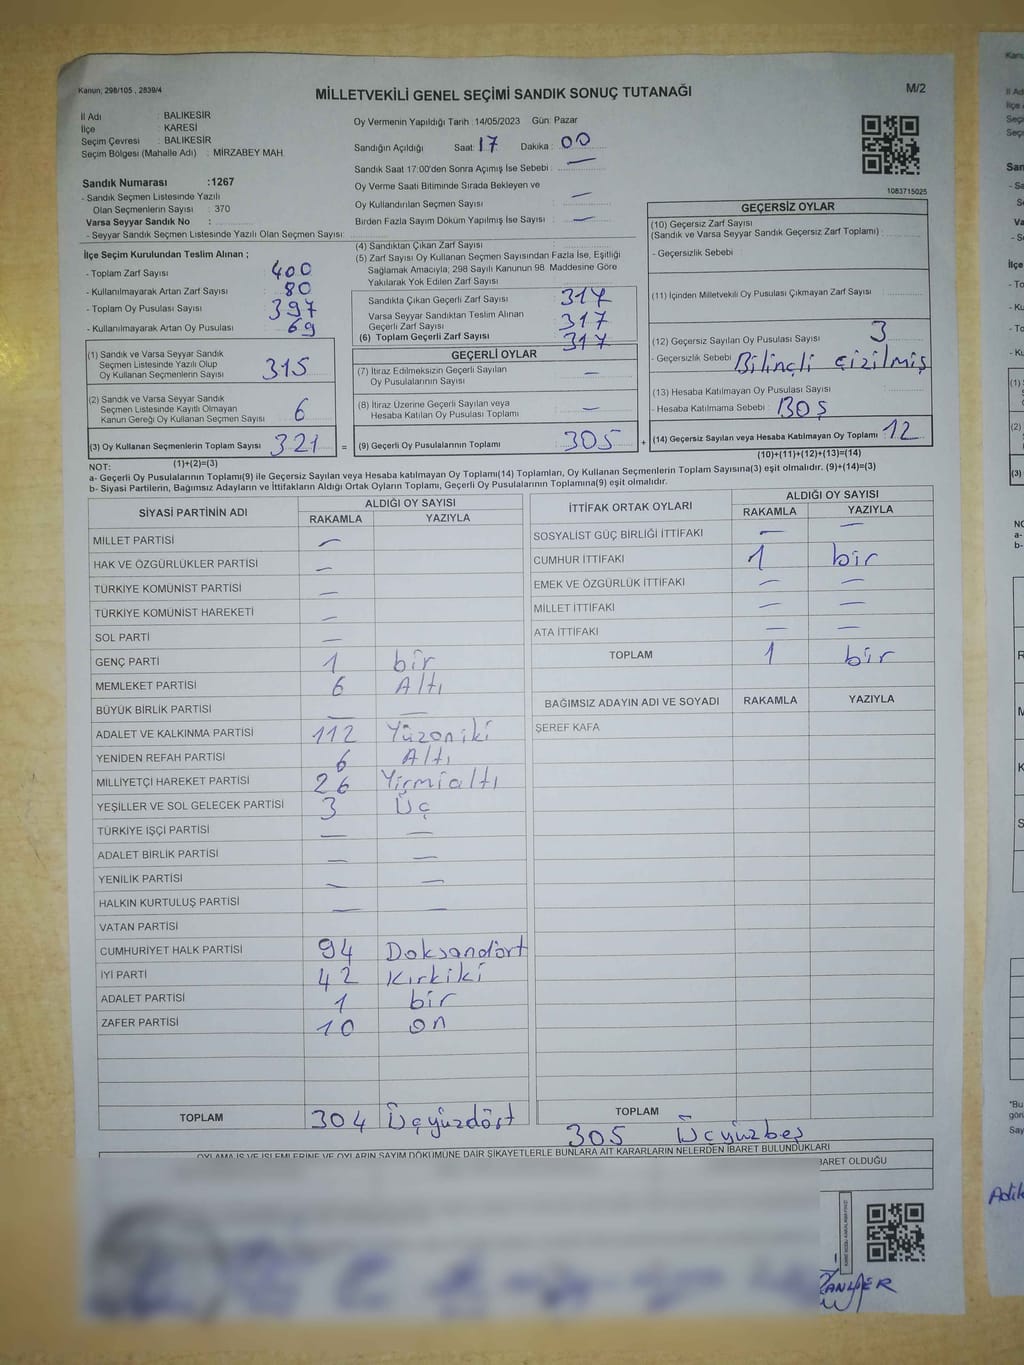 Kanun, 298/105 , 2839/4
MİLLETVEKİLİ GENEL SEÇİMİ SANDIK SONUÇ TUTANAĞI
M/2
İl Adı : BALIKESİR
İlçe : KARESİ
Seçim Çevresi : BALIKESİR
Seçim Bölgesi (Mahalle Adı) : MİRZABEY MAH.
Oy Vermenin Yapıldığı Tarih : 14/05/2023 Gün: Pazar
Sandığın Açıldığı Saat: 17 Dakika: 00
Sandık Saat 17:00'den Sonra Açımış İse Sebebi : —
Oy Verme Saati Bitiminde Sırada Bekleyen ve
Oy Kullandırılan Seçmen Sayısı : —
Birden Fazla Sayım Döküm Yapılmış İse Sayısı : —
1083715025
Sandık Numarası :1267
- Sandık Seçmen Listesinde Yazılı
Olan Seçmenlerin Sayısı : 370
Varsa Seyyar Sandık No :
- Seyyar Sandık Seçmen Listesinde Yazılı Olan Seçmen Sayısı:
İlçe Seçim Kurulundan Teslim Alınan ;
- Toplam Zarf Sayısı : 400
- Kullanılmayarak Artan Zarf Sayısı : 80
- Toplam Oy Pusulası Sayısı : 397
- Kullanılmayarak Artan Oy Pusulası : 69
(1) Sandık ve Varsa Seyyar Sandık
Seçmen Listesinde Yazılı Olup
Oy Kullanan Seçmenlerin Sayısı 315
(2) Sandık ve Varsa Seyyar Sandık
Seçmen Listesinde Kayıtlı Olmayan
Kanun Gereği Oy Kullanan Seçmen Sayısı 6
(3) Oy Kullanan Seçmenlerin Toplam Sayısı 321 =
(1)+(2)=(3)
(4) Sandıktan Çıkan Zarf Sayısı :
(5) Zarf Sayısı Oy Kullanan Seçmen Sayısından Fazla İse, Eşitliği
Sağlamak Amacıyla; 298 Sayılı Kanunun 98. Maddesine Göre
Yakılarak Yok Edilen Zarf Sayısı :
Sandıkta Çıkan Geçerli Zarf Sayısı : 317
Varsa Seyyar Sandıktan Teslim Alınan
Geçerli Zarf Sayısı : 317
(6) Toplam Geçerli Zarf Sayısı : 317
GEÇERLİ OYLAR
(7) İtiraz Edilmeksizin Geçerli Sayılan
Oy Pusulalarının Sayısı : —
(8) İtiraz Üzerine Geçerli Sayılan veya
Hesaba Katılan Oy Pusulası Toplamı : —
(9) Geçerli Oy Pusulalarının Toplamı : 305 +
GEÇERSİZ OYLAR
(10) Geçersiz Zarf Sayısı
(Sandık ve Varsa Seyyar Sandık Geçersiz Zarf Toplamı) :
- Geçersizlik Sebebi
(11) İçinden Milletvekili Oy Pusulası Çıkmayan Zarf Sayısı :
(12) Geçersiz Sayılan Oy Pusulası Sayısı : 3
- Geçersizlik Sebebi : Bilinçli çizilmiş
(13) Hesaba Katılmayan Oy Pusulası Sayısı :
- Hesaba Katılmama Sebebi : BOŞ
(14) Geçersiz Sayılan veya Hesaba Katılmayan Oy Toplamı : 12
(10)+(11)+(12)+(13)=(14)
NOT:
a- Geçerli Oy Pusulalarının Toplamı(9) ile Geçersiz Sayılan veya Hesaba katılmayan Oy Toplamı(14) Toplamları, Oy Kullanan Seçmenlerin Toplam Sayısına(3) eşit olmalıdır. (9)+(14)=(3)
b- Siyasi Partilerin, Bağımsız Adayların ve İttifakların Aldığı Ortak Oyların Toplamı, Geçerli Oy Pusulalarının Toplamına(9) eşit olmalıdır.
SİYASİ PARTİNİN ADI ALDIĞI OY SAYISI
RAKAMLA YAZIYLA
MİLLET PARTİSİ —
HAK VE ÖZGÜRLÜKLER PARTİSİ —
TÜRKİYE KOMÜNİST PARTİSİ —
TÜRKİYE KOMÜNİST HAREKETİ —
SOL PARTİ —
GENÇ PARTİ 1 bir
MEMLEKET PARTİSİ 6 Altı
BÜYÜK BİRLİK PARTİSİ — —
ADALET VE KALKINMA PARTİSİ 112 Yüzoniki
YENİDEN REFAH PARTİSİ 6 Altı
MİLLİYETÇİ HAREKET PARTİSİ 26 Yirmialtı
YEŞİLLER VE SOL GELECEK PARTİSİ 3 Üç
TÜRKİYE İŞÇİ PARTİSİ — —
ADALET BİRLİK PARTİSİ — —
YENİLİK PARTİSİ — —
HALKIN KURTULUŞ PARTİSİ — —
VATAN PARTİSİ
CUMHURİYET HALK PARTİSİ 94 Doksandört
İYİ PARTİ 42 Kırkiki
ADALET PARTİSİ 1 bir
ZAFER PARTİSİ 10 on
TOPLAM 304 Üçyüzdört
İTTİFAK ORTAK OYLARI ALDIĞI OY SAYISI
RAKAMLA YAZIYLA
SOSYALİST GÜÇ BİRLİĞİ İTTİFAKI — —
CUMHUR İTTİFAKI 1 bir
EMEK VE ÖZGÜRLÜK İTTİFAKI — —
MİLLET İTTİFAKI — —
ATA İTTİFAKI — —
TOPLAM 1 bir
BAĞIMSIZ ADAYIN ADI VE SOYADI RAKAMLA YAZIYLA
ŞEREF KAFA
TOPLAM
305 Üçyüzbeş
OYLAMA İŞ VE İŞLEMLERİNE VE OYLARIN SAYIM DÖKÜMÜNE DAİR ŞİKAYETLERLE BUNLARA AİT KARARLARIN NELERDEN İBARET BULUNDUKLARI
BARET OLDUĞU